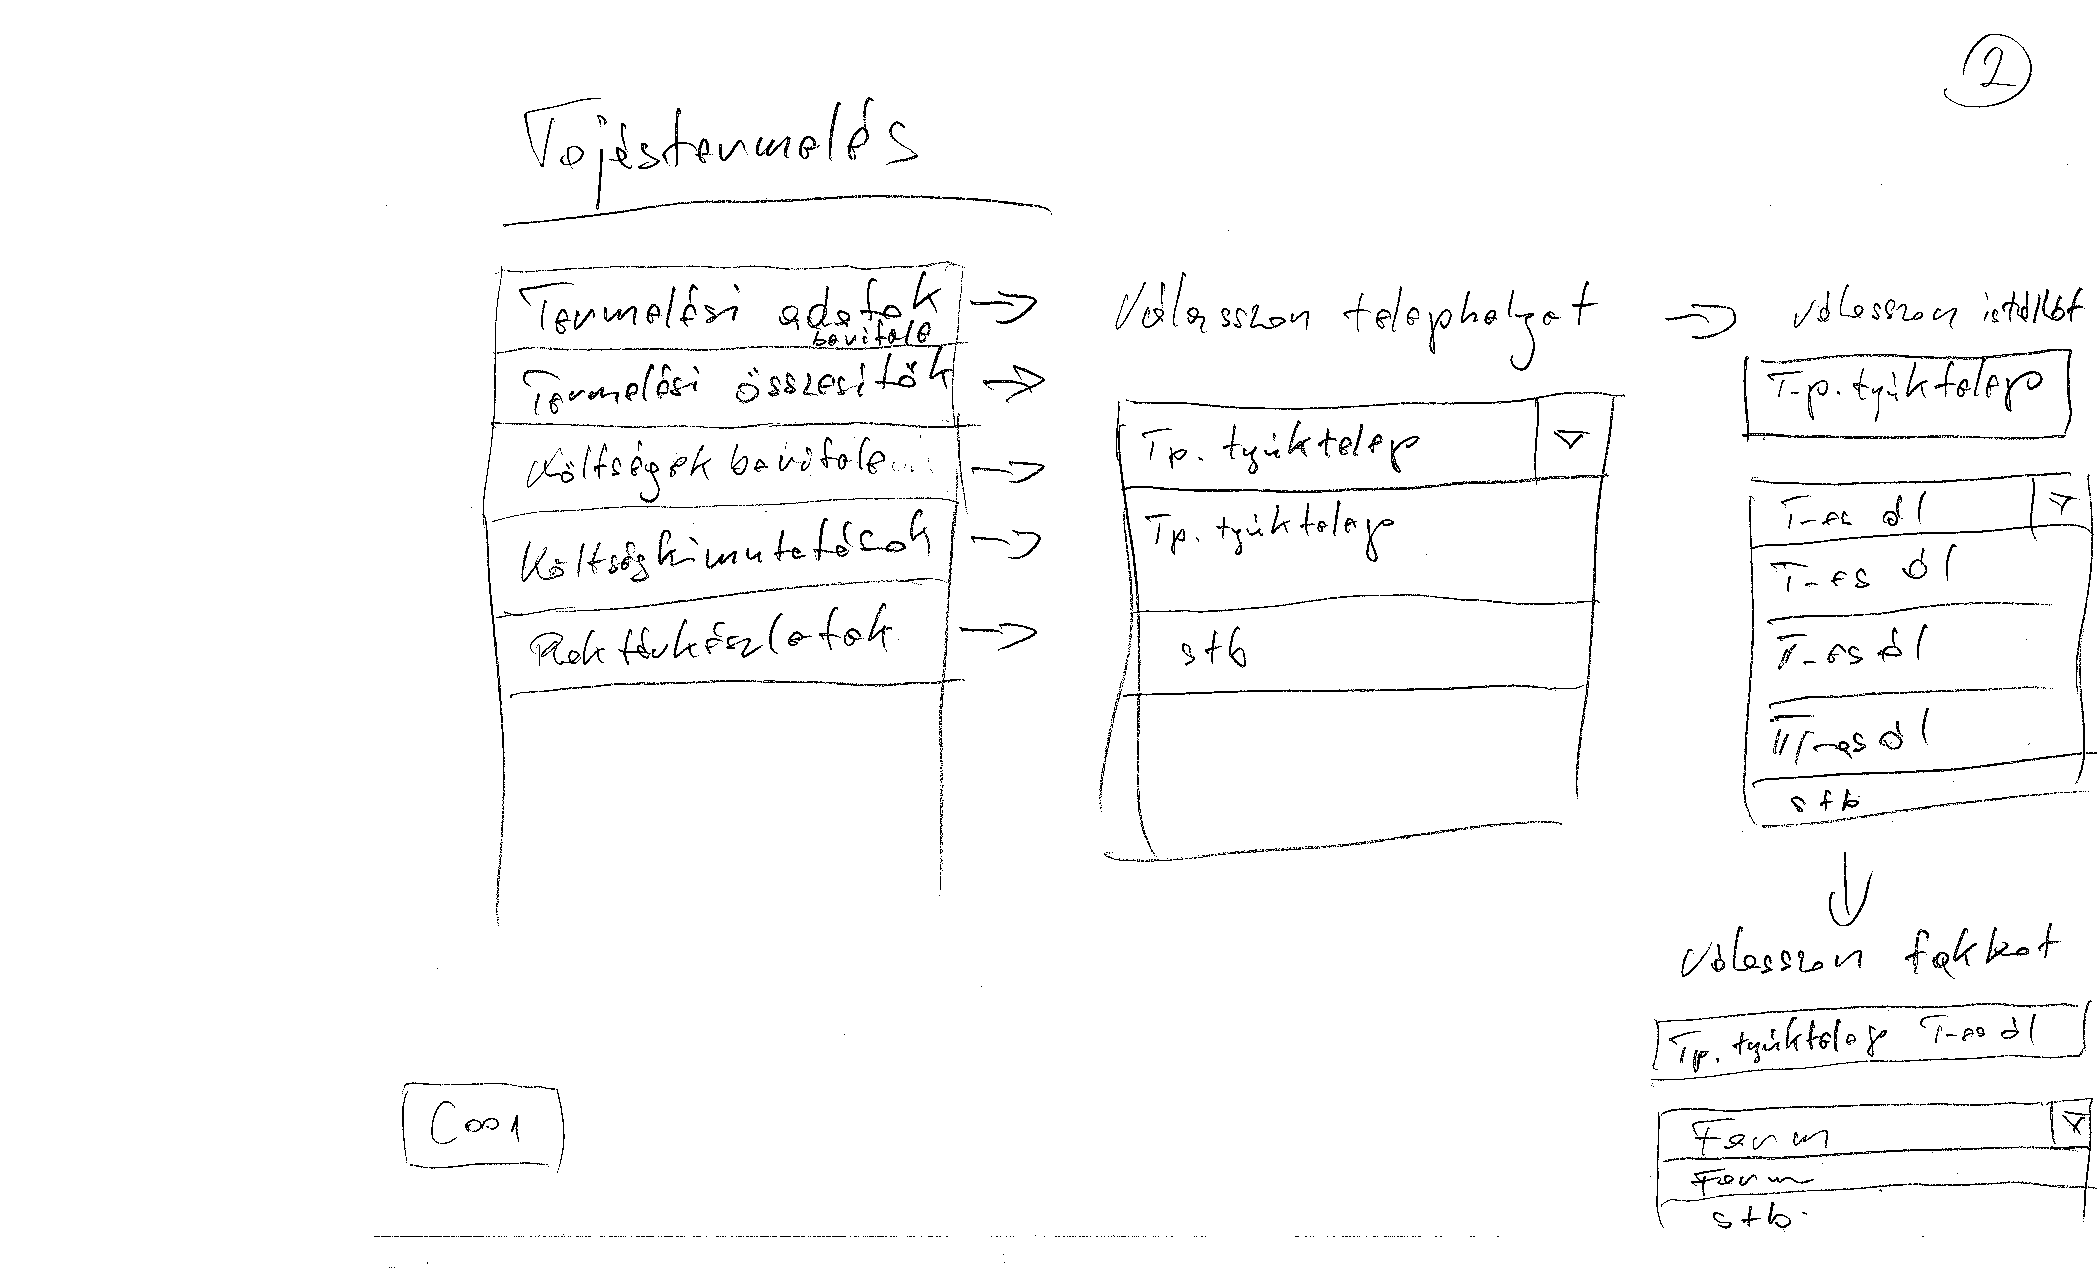 2
Tojástermelés
Termelési adatok
bevitele
Termelési összesítők
Költségek bevitele
Költségkimutatások
Raktárkészletek
Válasszon telephelyet
Tp. tyúktelep
Tp. tyúktelep
stb
Válasszon istállót
T-p. tyúktelep
I-es ól
I-es ól
II-es ól
III-es ól
stb
Válasszon fakkot
Tp. tyúktelep I-es ól
Farm
Farm
stb.
C001